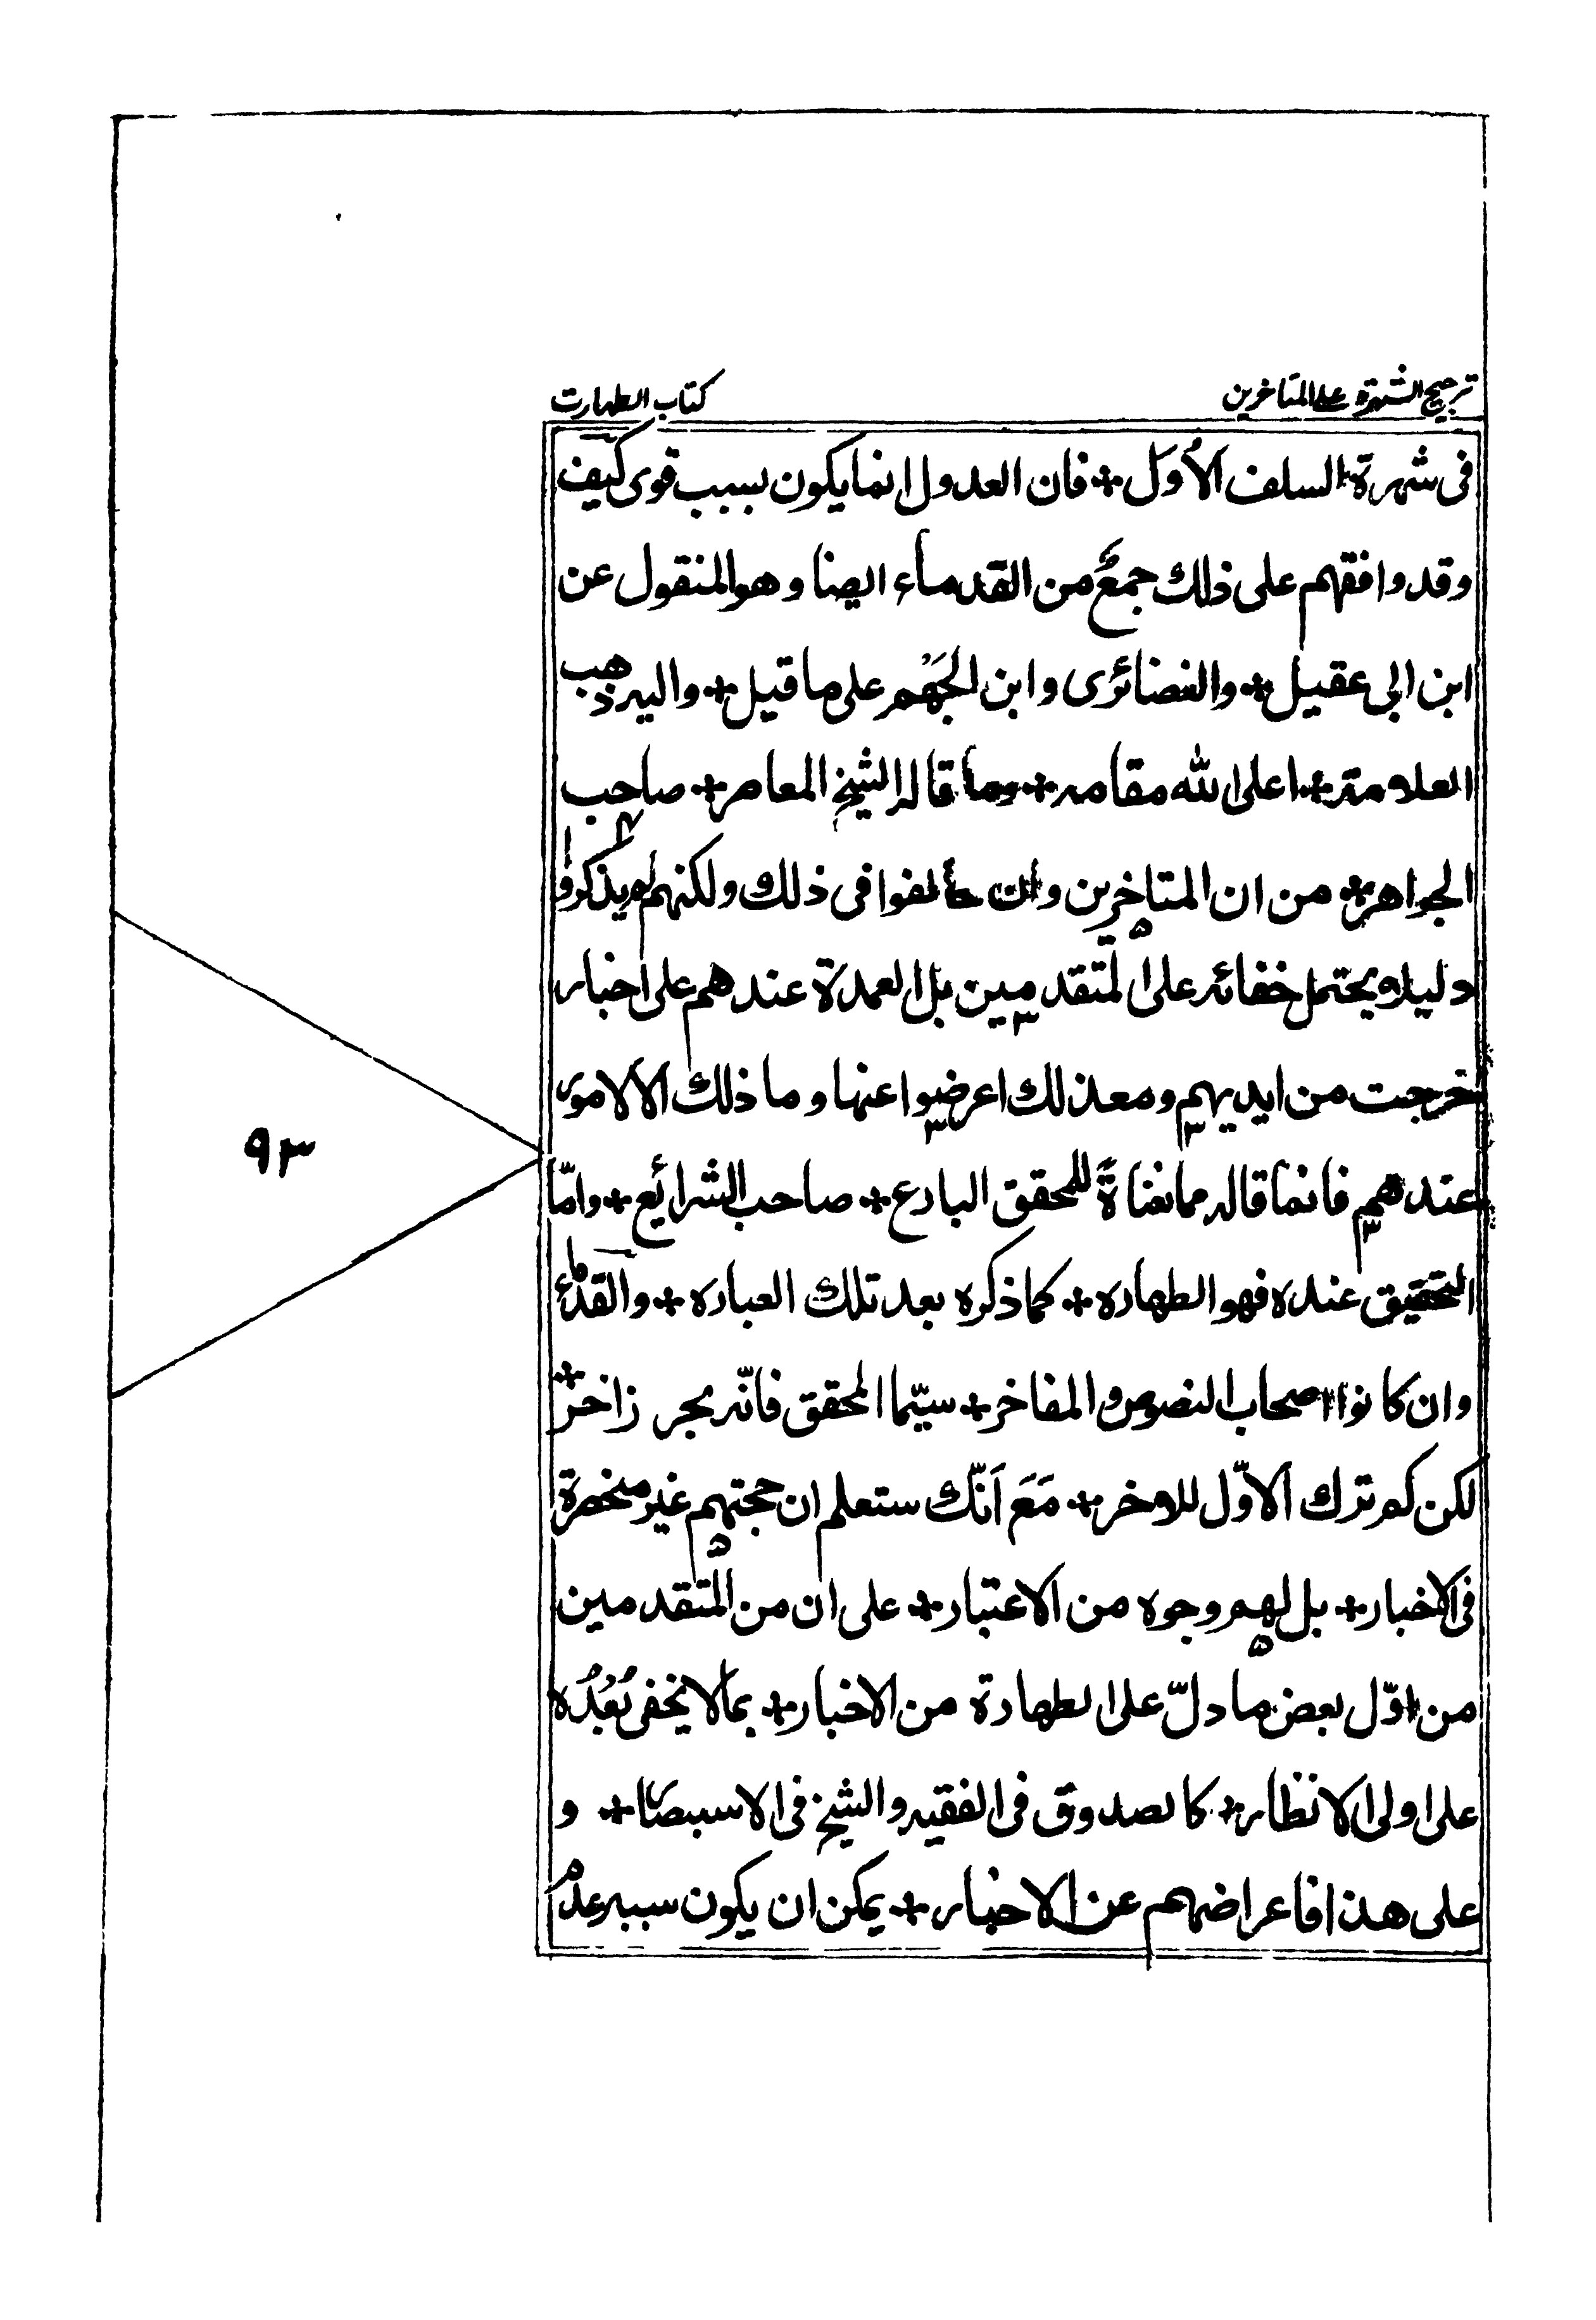 ترجيح الشهرة على المتاخرين
كتاب الطهارت
فى شهرة السلف الأُوَل * فان العدول انما يكون بسبب قوى كيف
وقد وافقهم على ذلك جمعٌ من القدماء ايضا وهو المنقول عن
ابن ابى عقيل * والغضائرى وابن الجَهْم على ما قيل * واليه ذهب
العلامة * اعلى الله مقامه * وما قاله الشيخ المعاصر * صاحب
الجواهر * من ان المتاخرين وان خالفوا فى ذلك ولكنهم لم يذكروا
دليلا يحتمل خفائه على المتقدمين بل العمدة عندهم على اخبار
خرجت من ايديهم ومعذلك اعرضوا عنها وما ذلك الا لامور
عندهم فانما قاله مما نعناةً للمحقق البارع * صاحب الشرايع * وامّا
التحقيق عنده فهو الطهاره * كما ذكره بعد تلك العباره * والقدماء
وان كانوا اصحاب النصوص والمفاخر * سيّما المحقق فانّه بحر زاخر *
لكن كم ترك الاوّل للاخر * مَعَ اَنّك ستعلم ان حجتهم غير منحصرة
فى الاخبار * بل لهم وجوه من الاعتبار * على ان من المتقدمين
من اوّل بعض ما دلّ على الطهارة من الاخبار * بما لا يخفى بُعْدُه
على اولى الانظار * كالصدوق فى الفقيه والشيخ فى الاسبصار * و
على هذا فاعراضهم عن الاخبار * يمكن ان يكون سببه عدم
٩٣